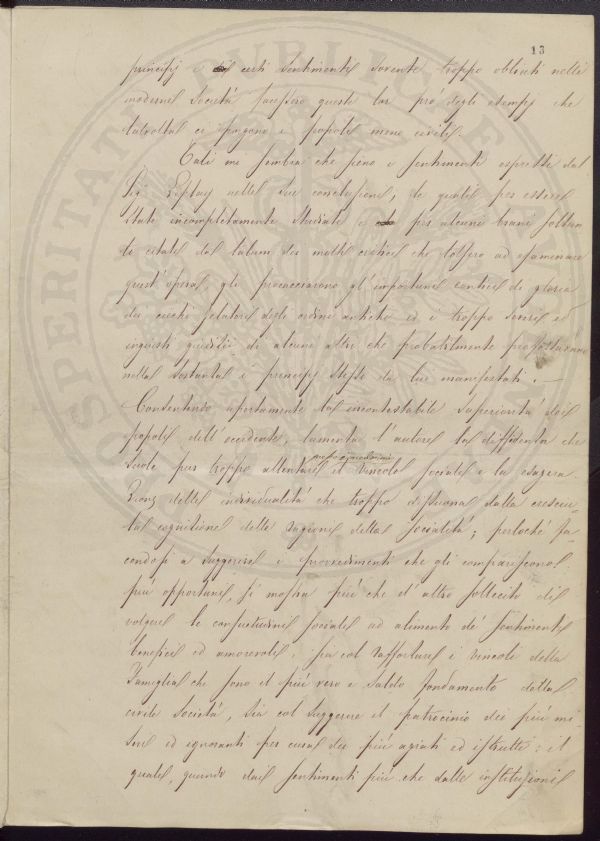 13
principj e di certi sentimenti sovente troppo obliati nelle
moderne Società sarebbero queste lor prò degli esempj che
talvolta ci porgono i popoli meno civili.
Tali mi sembra che sieno i sentimenti espressi dal
Sig. Leplay nella sua conclusione, le quali per essere
state incompletamente studiate e per alcuni brani soltan
to citate dal taluni dei molti critici che tolsero ad esaminare
quest'opera, gli procacciarono gl'importuni cantici di gloria
dei ciechi zelatori degli ordini antichi ed i troppo severi ed
ingiusti giudizii di alcuni altri che probabilmente professavano
nella sostanza i principj stessi da lui manifestati. —
Consentendo apertamente la incontestabile superiorità dei
popoli dell'occidente, lamenta l'autore la diffidenza che
suole pur troppo allentare il vincolo sociale e la esagera
zione della individualità che troppo discorda dalla cresciu-
ta cognizione delle ragioni della socialità; perlochè fa
cendosi a suggerire i provvedimenti che gli compariscono
più opportuni, si mostra più che d'altro sollecito di
volgere le consuetudini sociali ad alimento de' sentimenti
benefici ed amorevoli, sia col raffortare i vincoli della
Famiglia che sono il più vero e saldo fondamento della
civile società, sia col suggerire il patrocinio dei più mi-
seri ed ignoranti per cura dei più agiati ed istrutti: il
quale, quando dai sentimenti più che dalle istituzioni